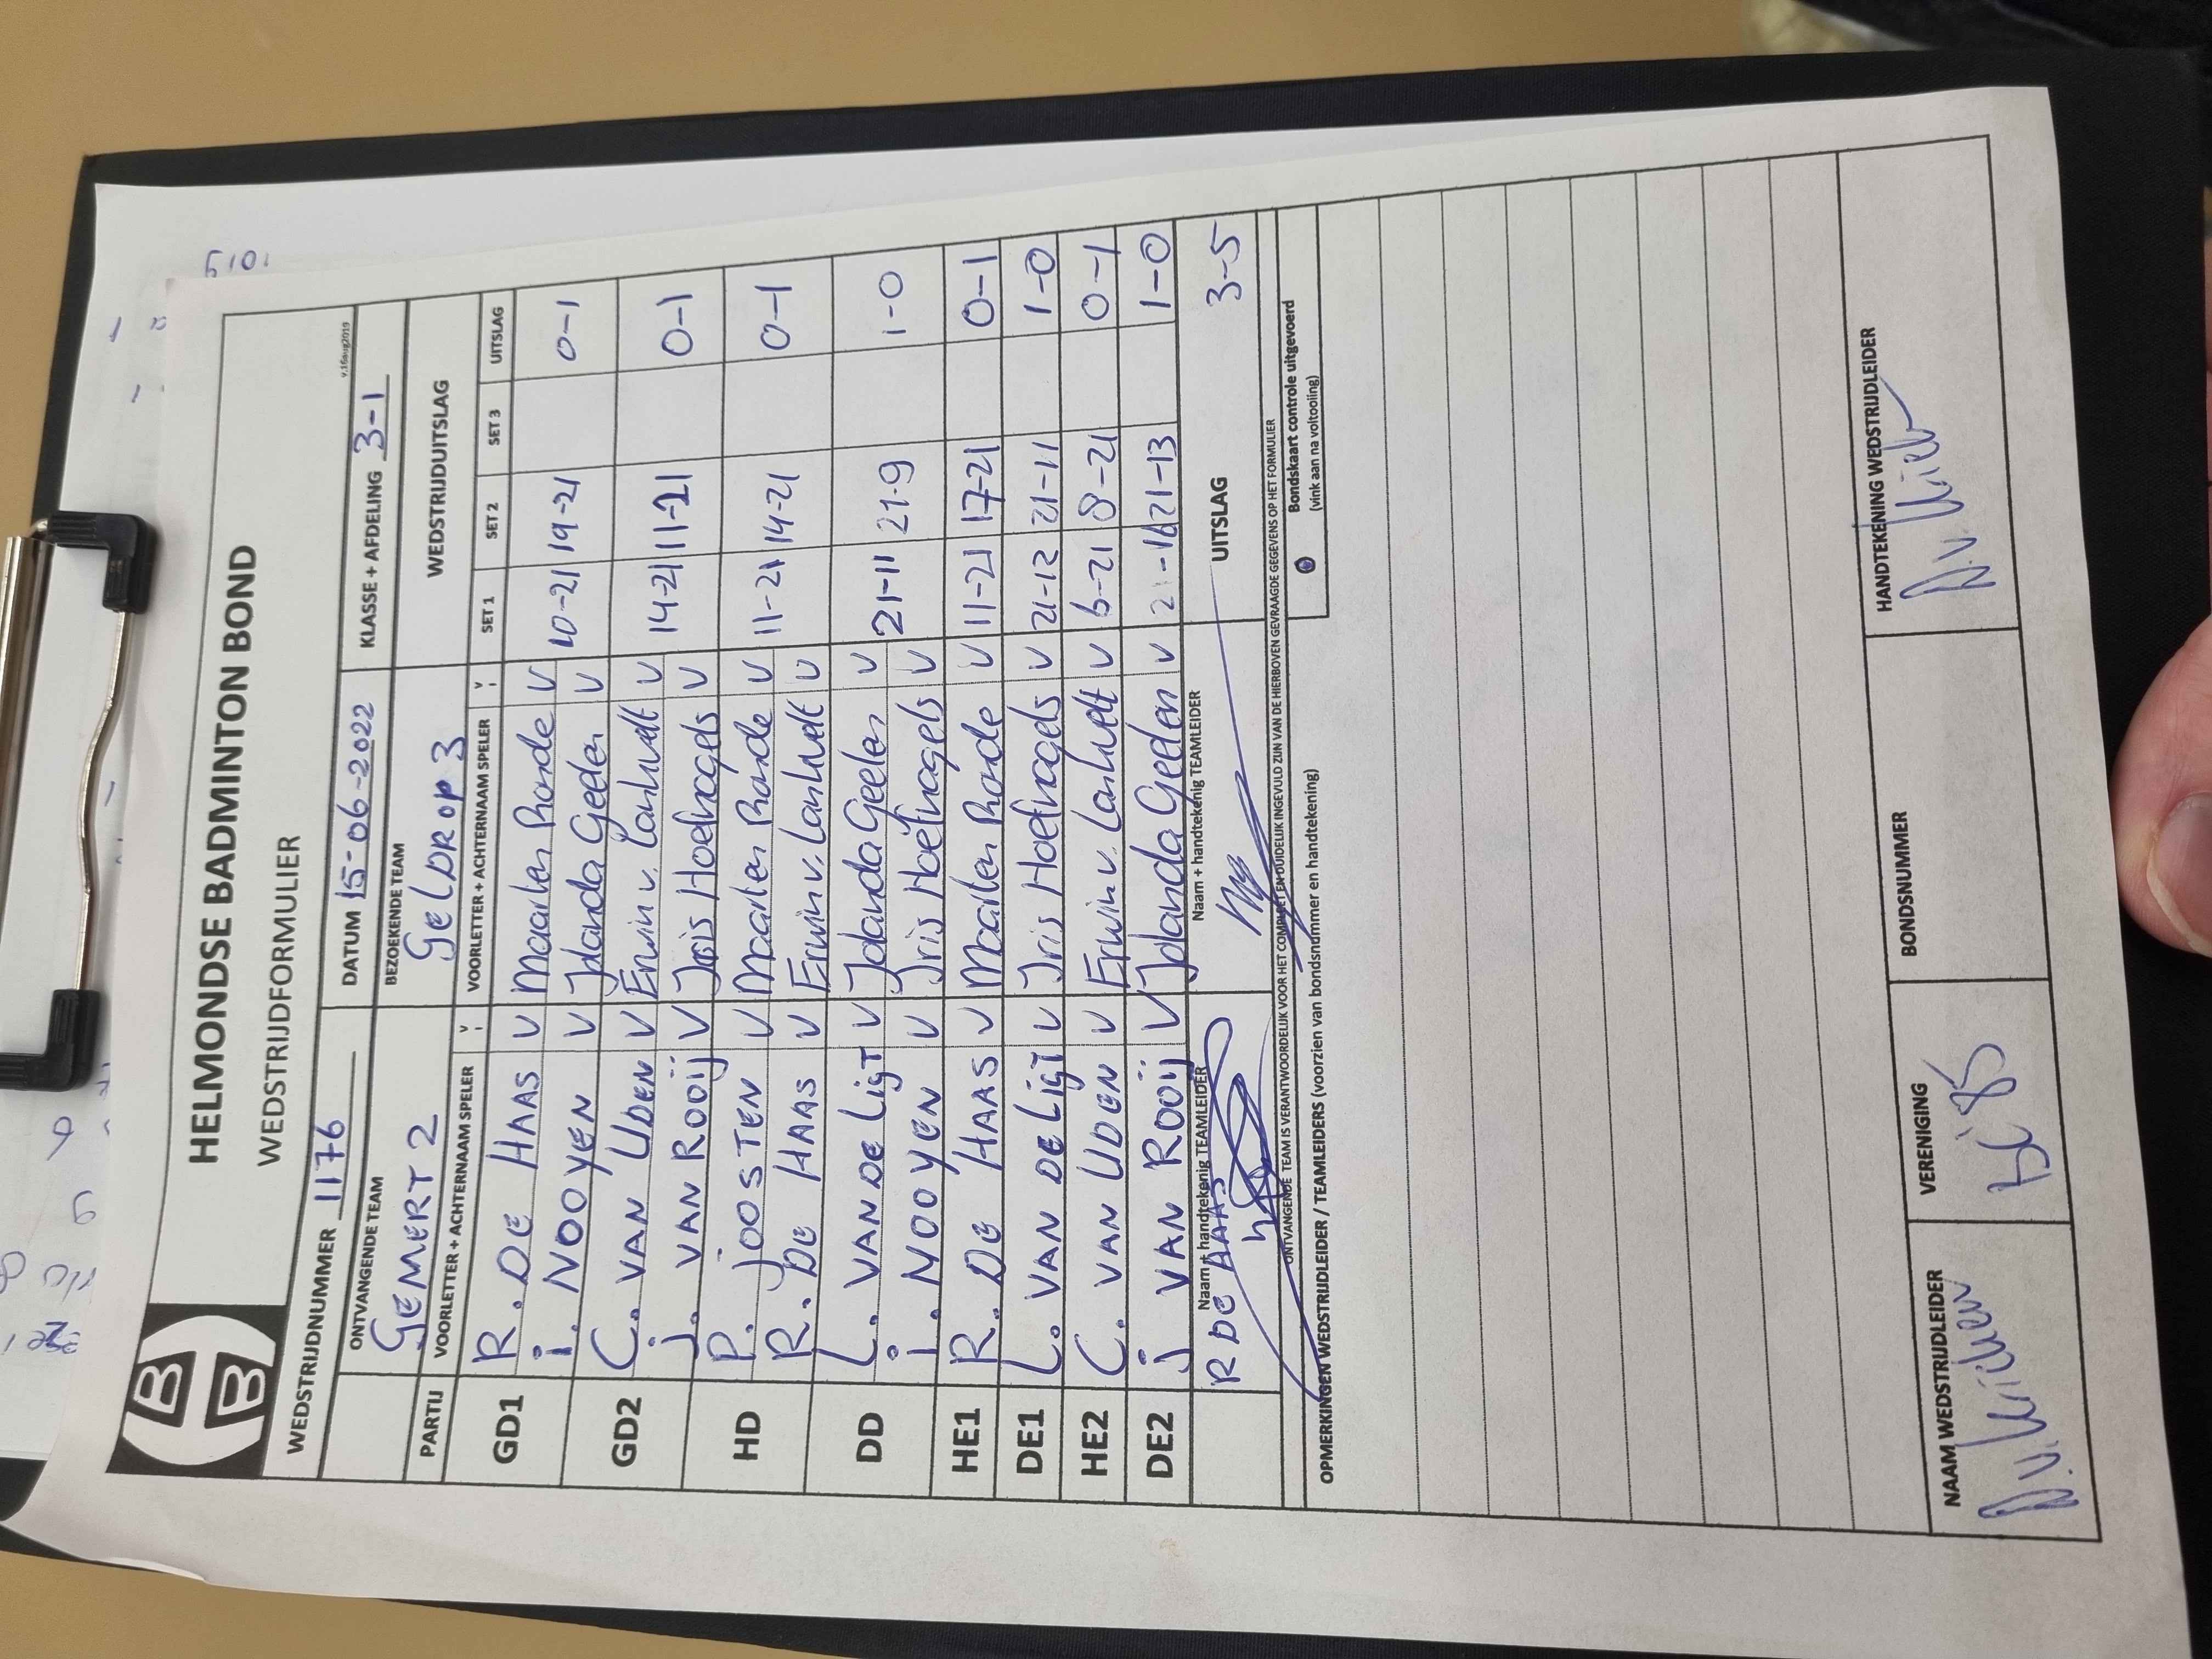 HELMONDSE BADMINTON BOND
WEDSTRIJDFORMULIER
v.16aug2019
WEDSTRIJDNUMMER 1176 DATUM 15-06-2022 KLASSE + AFDELING 3-1
ONTVANGENDE TEAM BEZOEKENDE TEAM WEDSTRIJDUITSLAG
GEMERT 2 GELDROP 3
PARTIJ VOORLETTER + ACHTERNAAM SPELER V VOORLETTER + ACHTERNAAM SPELER V SET 1 SET 2 SET 3 UITSLAG
GD1 R. DE HAAS V Maarten Ronde V 10-21 19-21 0-1
i. NOOYEN V Jolanda Geelen V
GD2 C. VAN UDEN V Erwin v. Lanhvelt V 14-21 11-21 0-1
j. VAN ROOIJ V Iris Hoefnagels V
HD P. JOOSTEN V Maarten Ronde V 11-21 14-21 0-1
R. DE HAAS V Erwin v. Lanhvelt V
DD L. VAN DE LIGT V Jolanda Geelen V 21-11 21-9 1-0
i. NOOYEN V Iris Hoefnagels V
HE1 R. DE HAAS V Maarten Ronde V 11-21 17-21 0-1
DE1 L. VAN DE LIGT V Iris Hoefnagels V 21-12 21-11 1-0
HE2 C. VAN UDEN V Erwin v. Lanhvelt V 6-21 8-21 0-1
DE2 j VAN ROOIJ V Jolanda Geelen V 21-16 21-13 1-0
Naam + handtekenig TEAMLEIDER Naam + handtekenig TEAMLEIDER UITSLAG 3-5
R DE HAAS
ONTVANGENDE TEAM IS VERANTWOORDELIJK VOOR HET COMPLEET EN DUIDELIJK INGEVULD ZIJN VAN DE HIERBOVEN GEVRAAGDE GEGEVENS OP HET FORMULIER
OPMERKINGEN WEDSTRIJDLEIDER / TEAMLEIDERS (voorzien van bondsnummer en handtekening)
Bondskaart controle uitgevoerd
(vink aan na voltooiing)
NAAM WEDSTRIJDLEIDER VERENIGING BONDSNUMMER HANDTEKENING WEDSTRIJDLEIDER